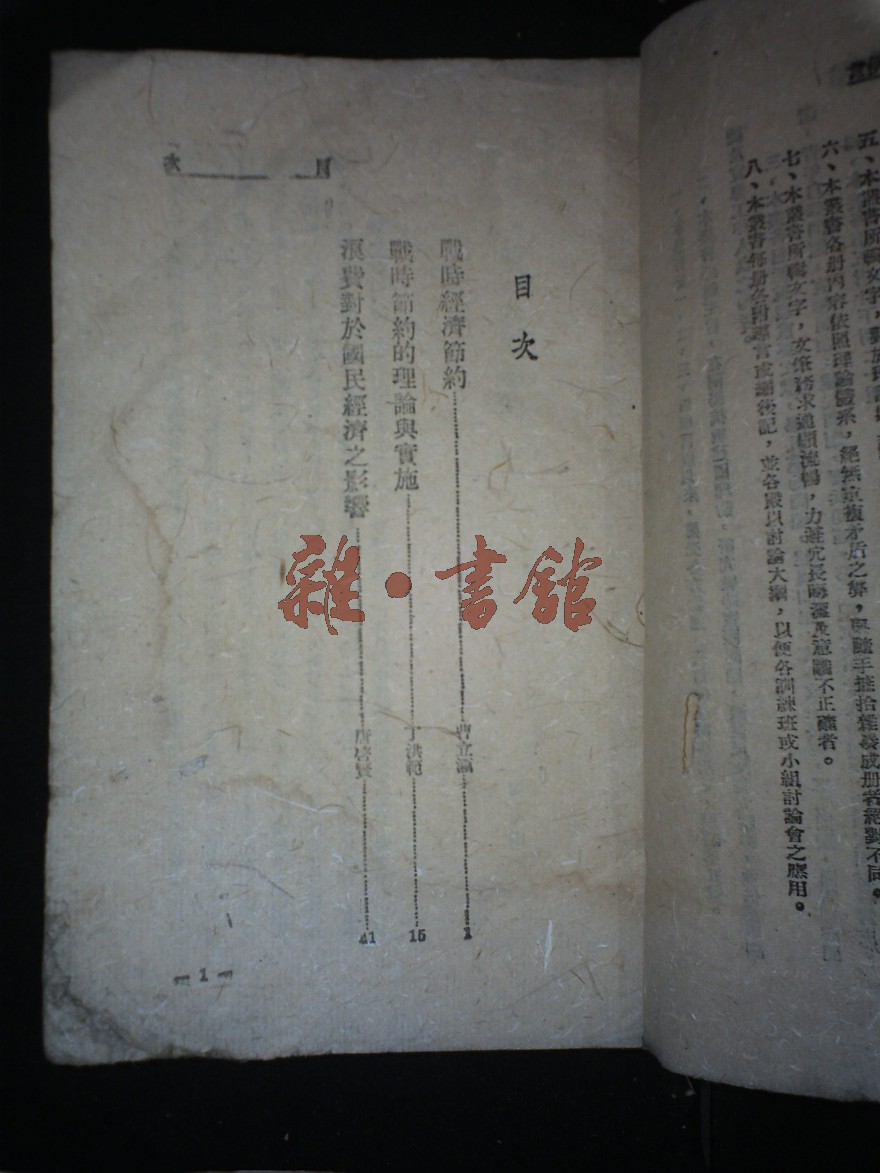 五、本叢書所輯文字，
六、本叢書各册內容依照理論體系，絕無重複矛盾之弊，與隨手摭拾雜湊成册者絕對不同。
七、本叢書所輯文字，文筆務求通順流暢，力避冗長晦澀及意識不正確者。
八、本叢書每册各附導言或編後記，並各殿以討論大綱，以便各訓練班或小組討論會之應用。
目次
目次
戰時經濟節約 曹立瀛 1
戰時節約的理論與實施 丁洪範 15
浪費對於國民經濟之影響 唐啓賢 41
1
雜·書館